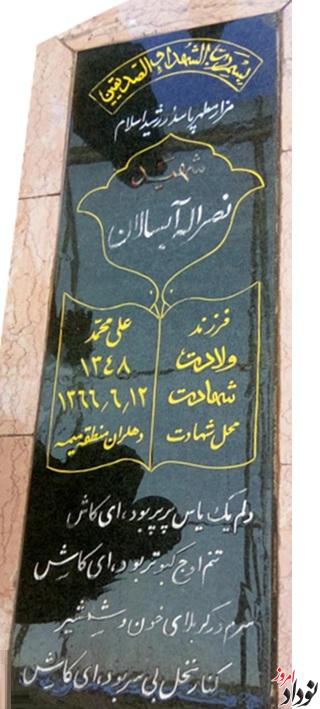 بسم رب الشهداء و الصدیقین
مزار مطهر پاسدار رشید اسلام
شهید
نصراله آبسالان
فرزند علی محمد
ولادت ۱۳۴۸
شهادت ۱۳۶۶٫۶٫۱۲
محل شهادت دهلران منطقه میمه
دلم یک یاس پرپر بود، ای کاش
تنم اوج کبوتر بود، ای کاش
سرم در کربلای خون و شمشیر
کنار نخل بی سر بود، ای کاش
نوداد امروز